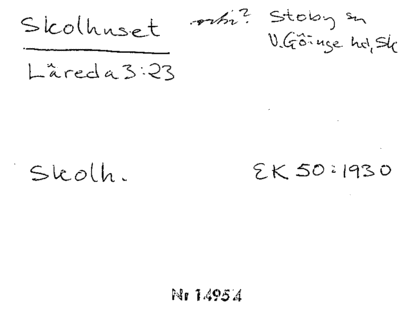 Skolhuset
Stoby sn
V. Göinge hd, Sk
Låreda 3:23
Skolh.
EK 50:1930
Nr 14954